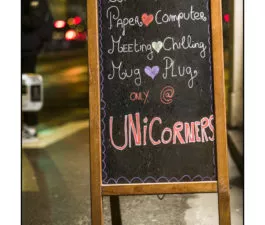 Paper ♥ Computer
Meeting ♥ Chilling
Mug ♥ Plug,
ONLY @
UNiCORNERS